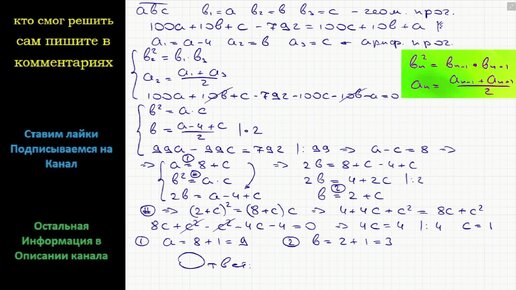 кто смог решить
сам пишите в
комментариях
Ставим лайки
Подписываемся на
Канал
Остальная
Информация в
Описании канала
abc b₁=a b₂=b b₃=c - геом. прог.
100a+10b+c-792=100c+10b+a
a₁=a-4 a₂=b a₃=c - ариф. прог.
b₂²=b₁·b₃
a₂=(a₁+a₃)/2
100a+10b+c-792-100c-10b-a=0
bₙ²=bₙ₋₁·bₙ₊₁
aₙ=(aₙ₋₁+aₙ₊₁)/2
b²=a·c
b=(a-4+c)/2 |·2
99a-99c=792 |:99 => a-c=8 =>
=> a=8+c => 2b=8+c-4+c
b²=a·c 2b=4+2c |:2
2b=a-4+c b=2+c
=> (2+c)²=(8+c)c => 4+4c+c²=8c+c²
8c+c²-c²-4c-4=0 => 4c=4 |:4 c=1
① a=8+1=9 ② b=2+1=3
Ответ: